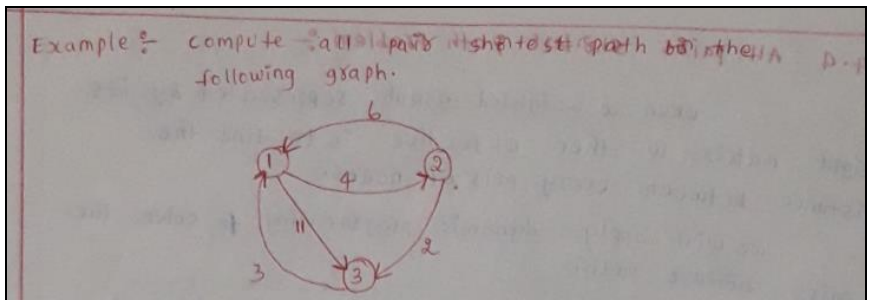 Example :- compute all pair shortest path in the
following graph.
6
1
2
4
11
2
3
3